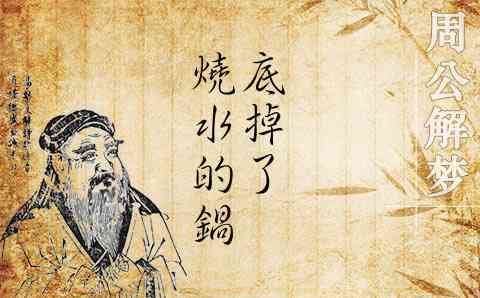 周公解梦
燒水的鍋
底掉了